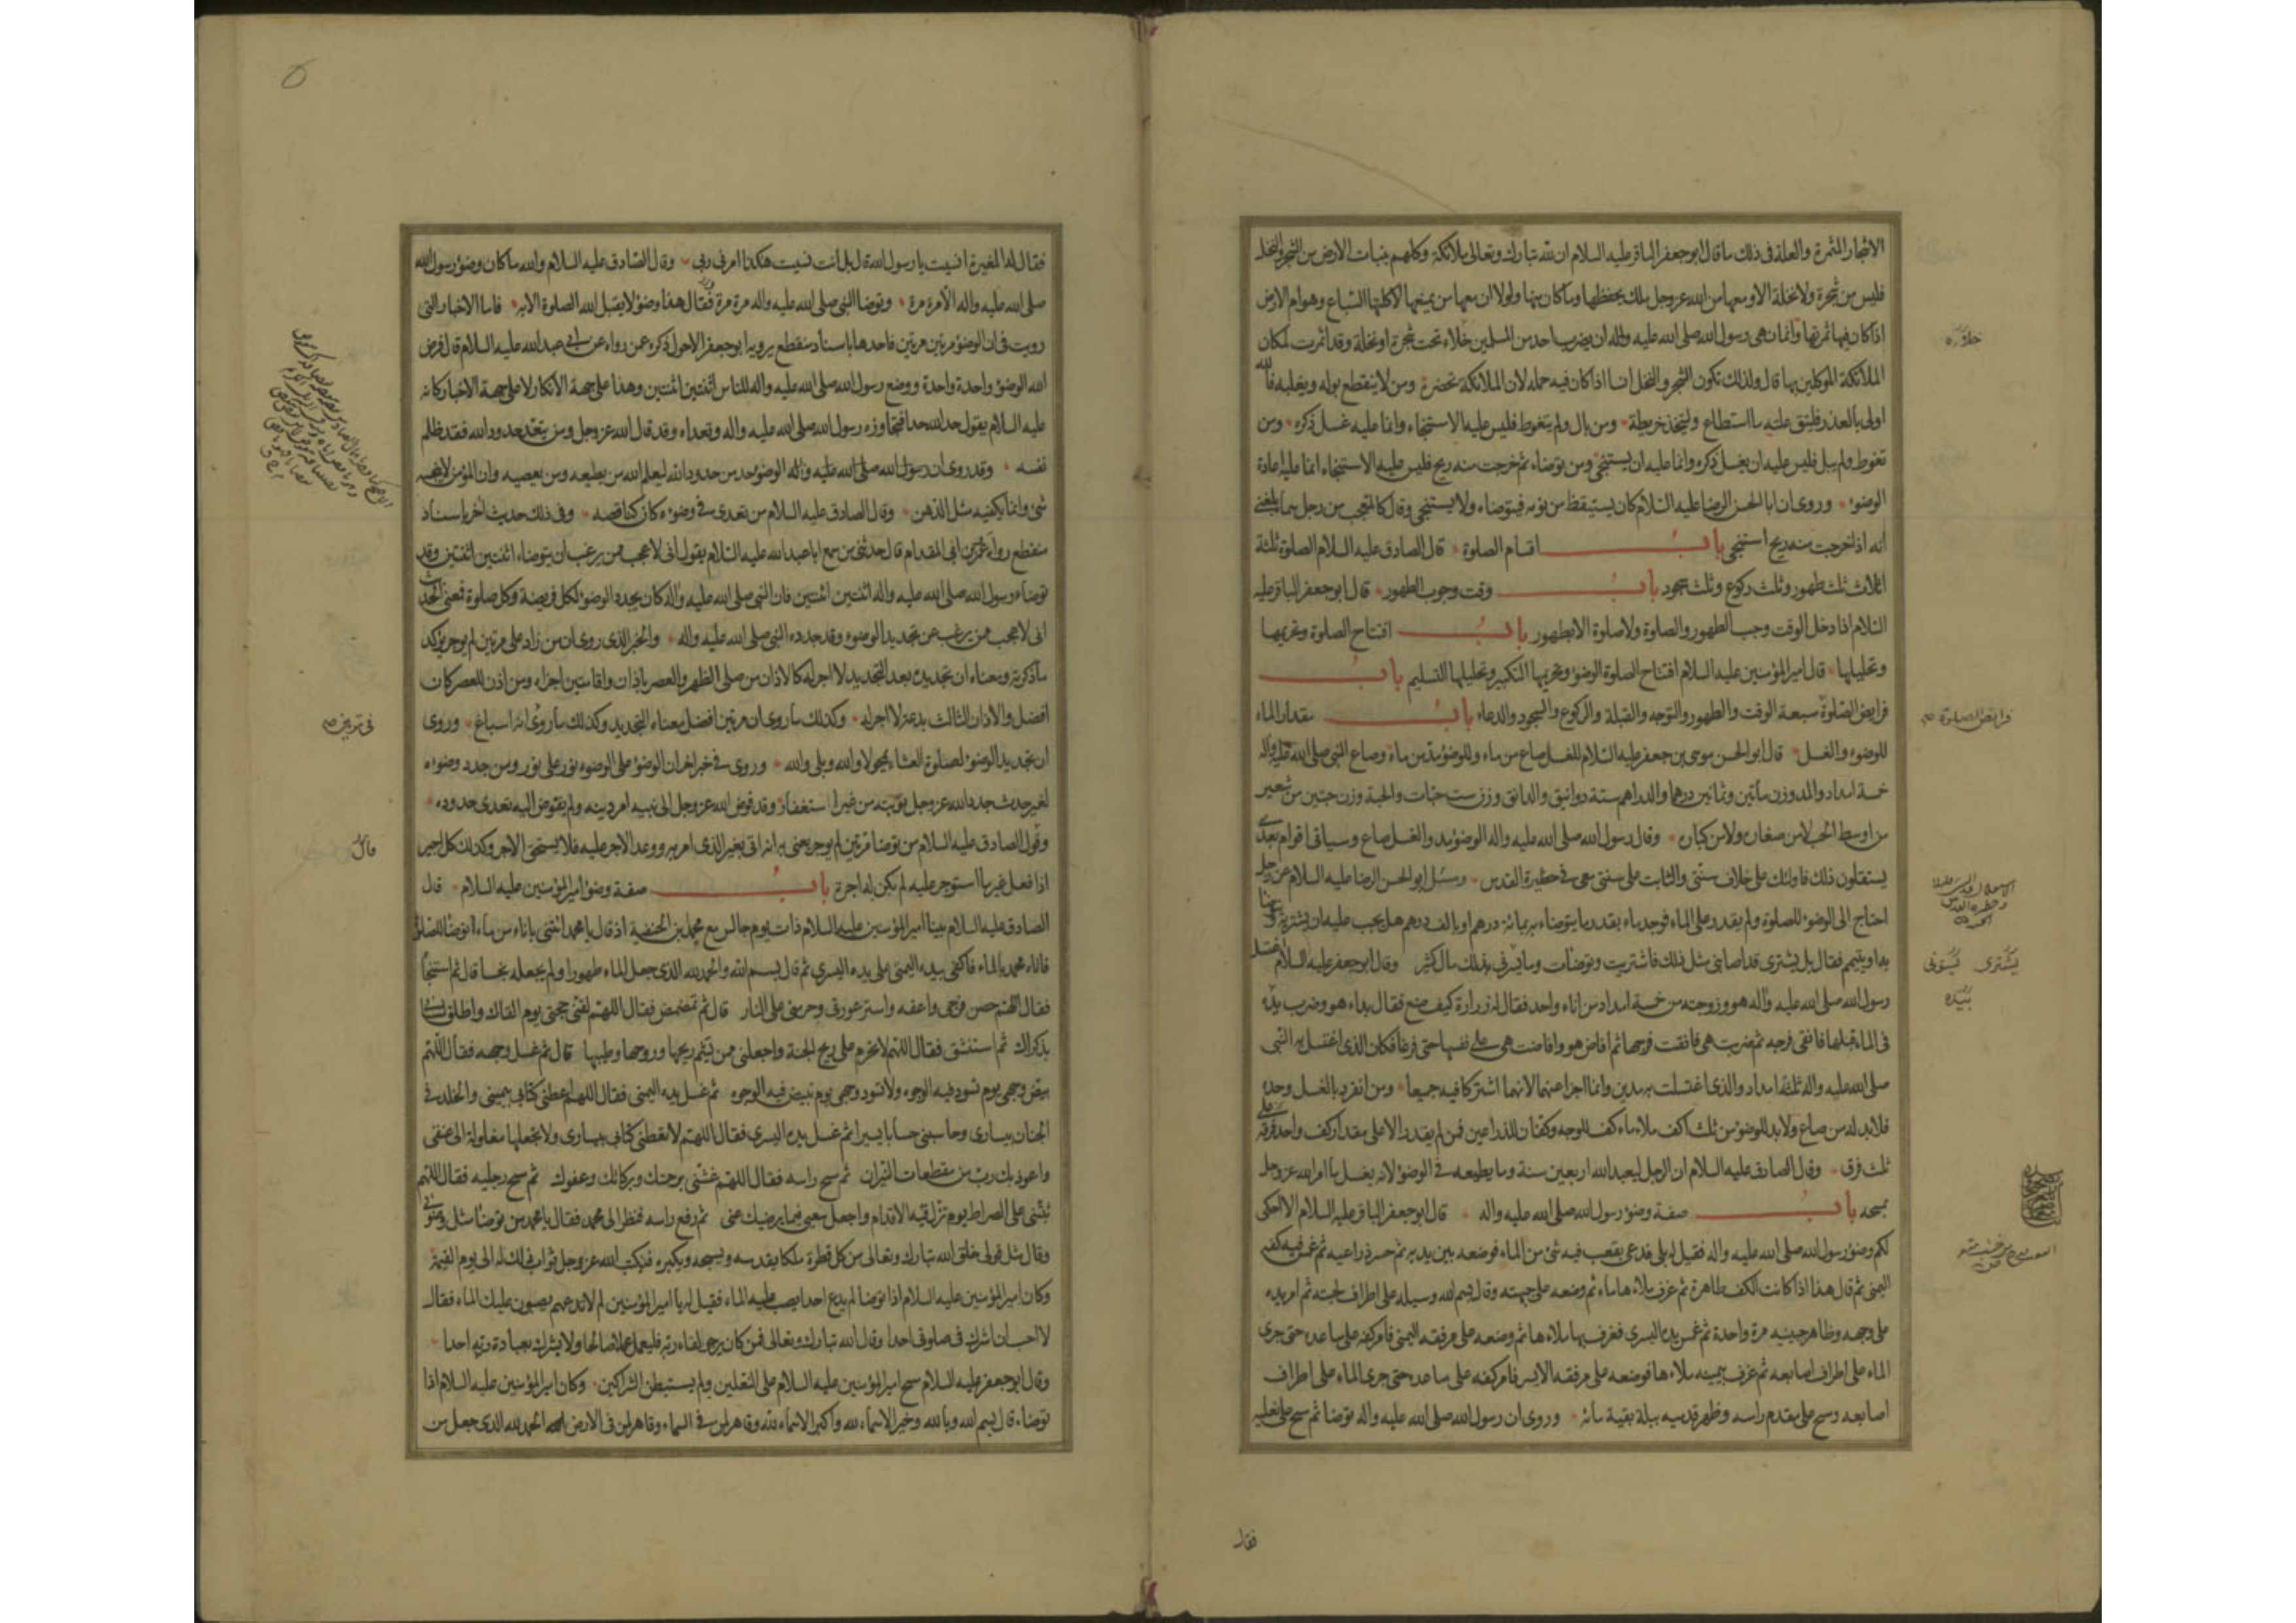 الاشجار المثمرة والعلة فى ذلك ما قال ابو جعفر الباقر عليه السلام ان لله تبارك وتعالى ملائكة وكلهم بنبات الارض من الشجر والنخل
فليس من شجرة ولا نخلة الا ومعها من الله عز وجل ملك يحفظها وما كان منها ولولا ان معها من يمنعها لاكلها السباع وهوام الارض
اذا كان فيها ثمرتها وانما نهى رسول الله صلى الله عليه واله ان يضرب احد من المسلمين خلاء تحت شجرة او نخلة وقد اثمرت لمكان
الملائكة الموكلين بها قال ولذلك تكون الشجر والنخل انسا اذا كان فيه حمله لان الملائكة تحضره ومن لا ينقطع بوله ويغلبه فالله
اولى بالعذر فليتق علته ما استطاع وليتخذ خريطة ومن بال ولم يتغوط فليس عليه الاستنجاء وانما عليه غسل ذكره ومن
تغوط ولم يبل فليس عليه ان يغسل ذكره وانما عليه ان يستنجى ومن توضاء ثم خرجت منه ريح فليس عليه الاستنجاء انما عليه اعادة
الوضوء وروى ان ابا الحسن الرضا عليه السلام كان يستيقظ من نومه فيتوضاء ولا يستنجى وقال كالمتعجب من رجل سماه بلغنى
انه اذا خرجت منه ريح استنجى باب اقسام الصلوة قال الصادق عليه السلام الصلوة ثلثة
اثلاث ثلث طهور وثلث ركوع وثلث سجود باب وقت وجوب الطهور قال ابو جعفر الباقر عليه
السلام اذا دخل الوقت وجب الطهور والصلوة ولا صلوة الا بطهور باب افتتاح الصلوة وتحريمها
وتحليلها قال امير المؤمنين عليه السلام افتتاح الصلوة الوضوء وتحريمها التكبير وتحليلها التسليم باب
فرايض الصلوة سبعة الوقت والطهور والتوجه والقبلة والركوع والسجود والدعاء باب مقدار الماء
للوضوء والغسل قال ابو الحسن موسى بن جعفر عليه السلام للغسل صاع من ماء وللوضوء مد من ماء وصاع النبى صلى الله عليه واله
خمسة امداد والمد وزن مأتين وثمانين درهما والدراهم ستة دوانيق والدانق وزن ست حبات والحبة وزن حبتين من شعير
من اوسط الحب لا من صغاره ولا من كباره وقال رسول الله صلى الله عليه واله الوضوء مد والغسل صاع وسياتى اقوام بعدى
يستقلون ذلك فاولئك على خلاف سنتى والثابت على سنتى معى فى حظيرة القدس وسئل ابو الحسن الرضا عليه السلام عن رجل
احتاج الى الوضوء للصلوة ولم يقدر على الماء فوجد ماء بقدر ما يتوضاء به بمائة درهم او بالف درهم هل يجب عليه ان يشتريه ويتوضأ
بها او يتيمم فقال بل يشترى قد اصابنى مثل ذلك فاشتريت وتوضات وما يسرنى بذلك مال كثير وقال ابو جعفر عليه السلام اغتسل
رسول الله صلى الله عليه واله هو وزوجته من خمسة امداد من اناء واحد فقال له زرارة كيف صنع فقال بداء هو وضرب يده
فى الماء قبلها فانقى فرجه ثم ضربت هى فانقت فرجها ثم افاض هو وافاضت هى على نفسها حتى فرغا فكان الذى اغتسل به النبى
صلى الله عليه واله ثلثة امداد والذى اغتسلت به مدين وانما اجزأ عنهما لانهما اشتركا فيه جميعا ومن انفرد بالغسل وحده
فلابد له من صاع ولابد للوضوء من ثلث اكف ملاء ماء كف للوجه وكفان للذراعين فمن لم يقدر الا على مقدار كف واحد فرقه
ثلث فرق وقال الصادق عليه السلام ان الرجل ليعبد الله اربعين سنة وما يطيعه فى الوضوء لانه يغسل ما امر الله عز وجل
بمسحه باب صفة وضوء رسول الله صلى الله عليه واله قال ابو جعفر الباقر عليه السلام الا احكى
لكم وضوء رسول الله صلى الله عليه واله فقيل له بلى فدعى بقعب فيه شئ من الماء فوضعه بين يديه ثم حسر ذراعيه ثم غمس فيه كفه
اليمنى ثم قال هذا اذا كانت الكف طاهرة ثم غرف ملاءها ماء ثم وضعه على جبهته وقال بسم الله وسيله على اطراف لحيته ثم امر يده
على وجهه وظاهر جبينيه مرة واحدة ثم غمس يده اليسرى فغرف بها ملاءها ثم وضعه على مرفقه اليمنى فامر كفه على ساعده حتى جرى
الماء على اطراف اصابعه ثم غرف بيمينه ملاءها فوضعه على مرفقه الايسر فامر كفه على ساعده حتى جرى الماء على اطراف
اصابعه ومسح على مقدم راسه وظهر قدميه ببلة بقية مائه وروى ان رسول الله صلى الله عليه واله توضا ثم مسح على نعليه
فرايض الصلوة
يشترى يسوئى
فقال
فقال له المغيرة انسيت يا رسول الله قال بل انت نسيت هكذا امرنى ربى وقال الصادق عليه السلام والله ما كان وضوء رسول الله
صلى الله عليه واله الا مرة مرة وتوضا النبى صلى الله عليه واله مرة مرة فقال هذا وضوء لا يقبل الله الصلوة الا به فاما الاخبار التى
رويت فى ان الوضوء مرتين مرتين فاحدها باسناد منقطع يرويه ابو جعفر الاحول ذكره عمن رواه عن ابى عبد الله عليه السلام قال فرض
الله الوضوء واحدة واحدة ووضع رسول الله صلى الله عليه واله للناس اثنتين اثنتين وهذا على جهة الانكار لا على جهة الاخبار كانه
عليه السلام يقول حد الله حدا فتجاوزه رسول الله صلى الله عليه واله وتعداه وقد قال الله عز وجل ومن يتعد حدود الله فقد ظلم
نفسه وقد روى ان رسول الله صلى الله عليه واله الوضوء حد من حدود الله ليعلم الله من يطيعه ومن يعصيه وان المؤمن لا ينجسه
شئ وانما يكفيه مثل الدهن وقال الصادق عليه السلام من تعدى فى وضوءه كان كناقصه وفى ذلك حديث اخر باسناد
منقطع رواه عمرو بن ابى المقدام قال حدثنى من سمع ابا عبد الله عليه السلام يقول انى لاعجب ممن يرغب ان يتوضاء اثنتين اثنتين وقد
توضاء رسول الله صلى الله عليه واله اثنتين اثنتين فان النبى صلى الله عليه واله كان يجدد الوضوء لكل فريضة وكل صلوة فمعنى الحديث
انى لاعجب ممن يرغب عن تجديد الوضوء وقد جدده النبى صلى الله عليه واله والخبر الذى روى ان من زاد على مرتين لم يوجر يؤكد
ما ذكرته ومعناه ان تجديده بعد التجديد لا اجر له كالاذان من صلى الظهر والعصر باذان واقامتين اجزاه ومن اذن للعصر كان
افضل والاذان الثالث بدعة لا اجر له وكذلك ما روى ان مرتين افضل معناه التجديد وكذلك ما روى انه اسباغ وروى
ان تجديد الوضوء لصلوة العشاء يمحو لا والله وبلى والله وروى فى خبر اخر ان الوضوء على الوضوء نور على نور ومن جدد وضوءه
لغير حدث جدد الله عز وجل توبته من غير استغفار وقد فوض الله عز وجل الى نبيه امر دينه ولم يفوض اليه تعدى حدوده
وقول الصادق عليه السلام من توضا مرتين لم يوجر يعنى به انه اتى بغير الذى امر به ووعد الاجر عليه فلا يستحق الاجر وكذلك كل اجير
اذا فعل غير ما استوجر عليه لم يكن له اجرة باب صفة وضوء امير المؤمنين عليه السلام قال
الصادق عليه السلام بينا امير المؤمنين عليه السلام ذات يوم جالس مع محمد بن الحنفية اذ قال يا محمد ائتنى باناء من ماء اتوضا للصلوة
فاتاه محمد بالماء فاكفى بيده اليمنى على يده اليسرى ثم قال بسم الله والحمد لله الذى جعل الماء طهورا ولم يجعله نجسا قال ثم استنجا
فقال اللهم حصن فرجى واعفه واستر عورتى وحرمنى على النار قال ثم تمضمض فقال اللهم لقنى حجتى يوم القاك واطلق لسانى
بذكراك ثم استنشق فقال اللهم لا تحرم على ريح الجنة واجعلنى ممن يشم ريحها وروحها وطيبها قال ثم غسل وجهه فقال اللهم
بيض وجهى يوم تسود فيه الوجوه ولا تسود وجهى يوم تبيض فيه الوجوه ثم غسل يده اليمنى فقال اللهم اعطنى كتابى بيمينى والخلد فى
الجنان بيسارى وحاسبنى حسابا يسيرا ثم غسل يده اليسرى فقال اللهم لا تعطنى كتابى بيسارى ولا تجعلها مغلولة الى عنقى
واعوذ بك رب من مقطعات النيران ثم مسح راسه فقال اللهم غشنى برحمتك وبركاتك وعفوك ثم مسح رجليه فقال اللهم
ثبتنى على الصراط يوم تزل فيه الاقدام واجعل سعيى فيما يرضيك عنى ثم رفع راسه فنظر الى محمد فقال يا محمد من توضا مثل وضوئى
وقال مثل قولى خلق الله تبارك وتعالى من كل قطرة ملكا يقدسه ويسبحه ويكبره فيكتب الله عز وجل ثواب ذلك له الى يوم القيمة
وكان امير المؤمنين عليه السلام اذا توضا لم يدع احدا يصب عليه الماء فقيل له يا امير المؤمنين لم لا تدعهم يصبون عليك الماء فقال
لا احب ان اشرك فى صلوتى احدا وقال الله تبارك وتعالى فمن كان يرجو لقاء ربه فليعمل عملا صالحا ولا يشرك بعبادة ربه احدا
وقال ابو جعفر عليه السلام مسح امير المؤمنين عليه السلام على النعلين ولم يستبطن الشراكين وكان امير المؤمنين عليه السلام اذا
توضاء قال بسم الله وبالله وخير الاسماء لله واكبر الاسماء لله وقاهر لمن فى السماء وقاهر لمن فى الارض الحمد لله الذى جعل من
قال